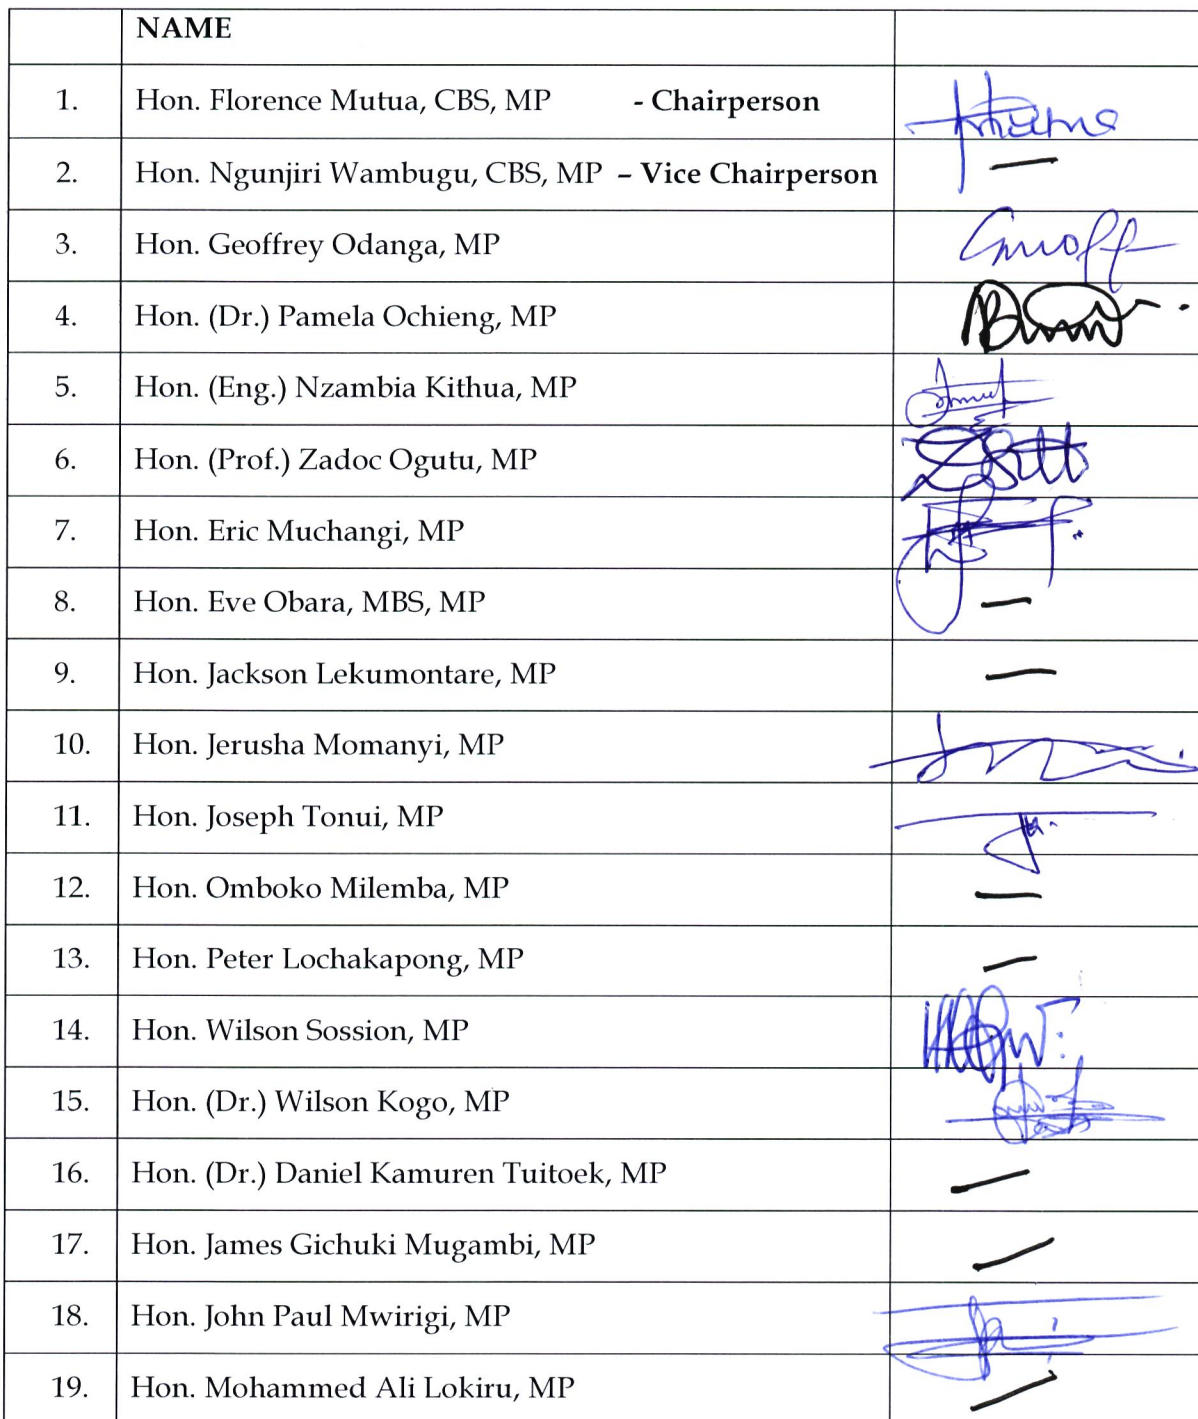 NAME
1. Hon. Florence Mutua, CBS, MP - Chairperson
2. Hon. Ngunjiri Wambugu, CBS, MP – Vice Chairperson —
3. Hon. Geoffrey Odanga, MP
4. Hon. (Dr.) Pamela Ochieng, MP
5. Hon. (Eng.) Nzambia Kithua, MP
6. Hon. (Prof.) Zadoc Ogutu, MP
7. Hon. Eric Muchangi, MP
8. Hon. Eve Obara, MBS, MP —
9. Hon. Jackson Lekumontare, MP —
10. Hon. Jerusha Momanyi, MP
11. Hon. Joseph Tonui, MP
12. Hon. Omboko Milemba, MP —
13. Hon. Peter Lochakapong, MP —
14. Hon. Wilson Sossion, MP
15. Hon. (Dr.) Wilson Kogo, MP
16. Hon. (Dr.) Daniel Kamuren Tuitoek, MP —
17. Hon. James Gichuki Mugambi, MP —
18. Hon. John Paul Mwirigi, MP
19. Hon. Mohammed Ali Lokiru, MP —